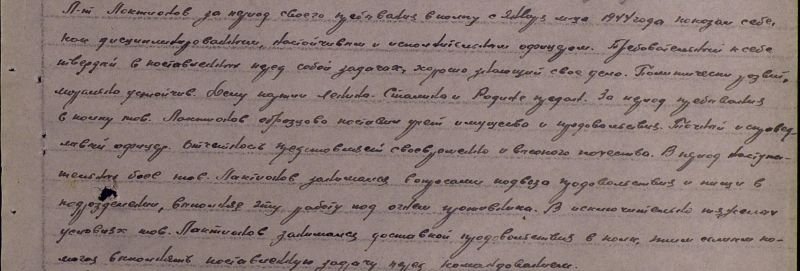 Л-т Локтионов за период своего пребывания в полку с января м-ца 1944 года показал себя,
как дисциплинированным, настойчивым и исполнительным офицером. Требовательный к себе
твердый в поставленных перед собой задачах, хорошо знающий свое дело. Политически развит,
морально устойчив. Делу партии Ленина-Сталина и Родине предан. За период пребывания
в полку тов. Локтионов образцово поставил учет имущества и продовольствия. Точный и
офицер. Отчетность представляет своевременно и высокого качества. В период наступа-
тельных боев тов. Локтионов занимался вопросами подвоза продовольствия и пищи в
подразделения, выполняя эту работу под огнем противника. В исключительно тяжелых
условиях тов. Локтионов занимался доставкой продовольствия в полк, этим самым по-
могая выполнять поставленную задачу перед командованием.